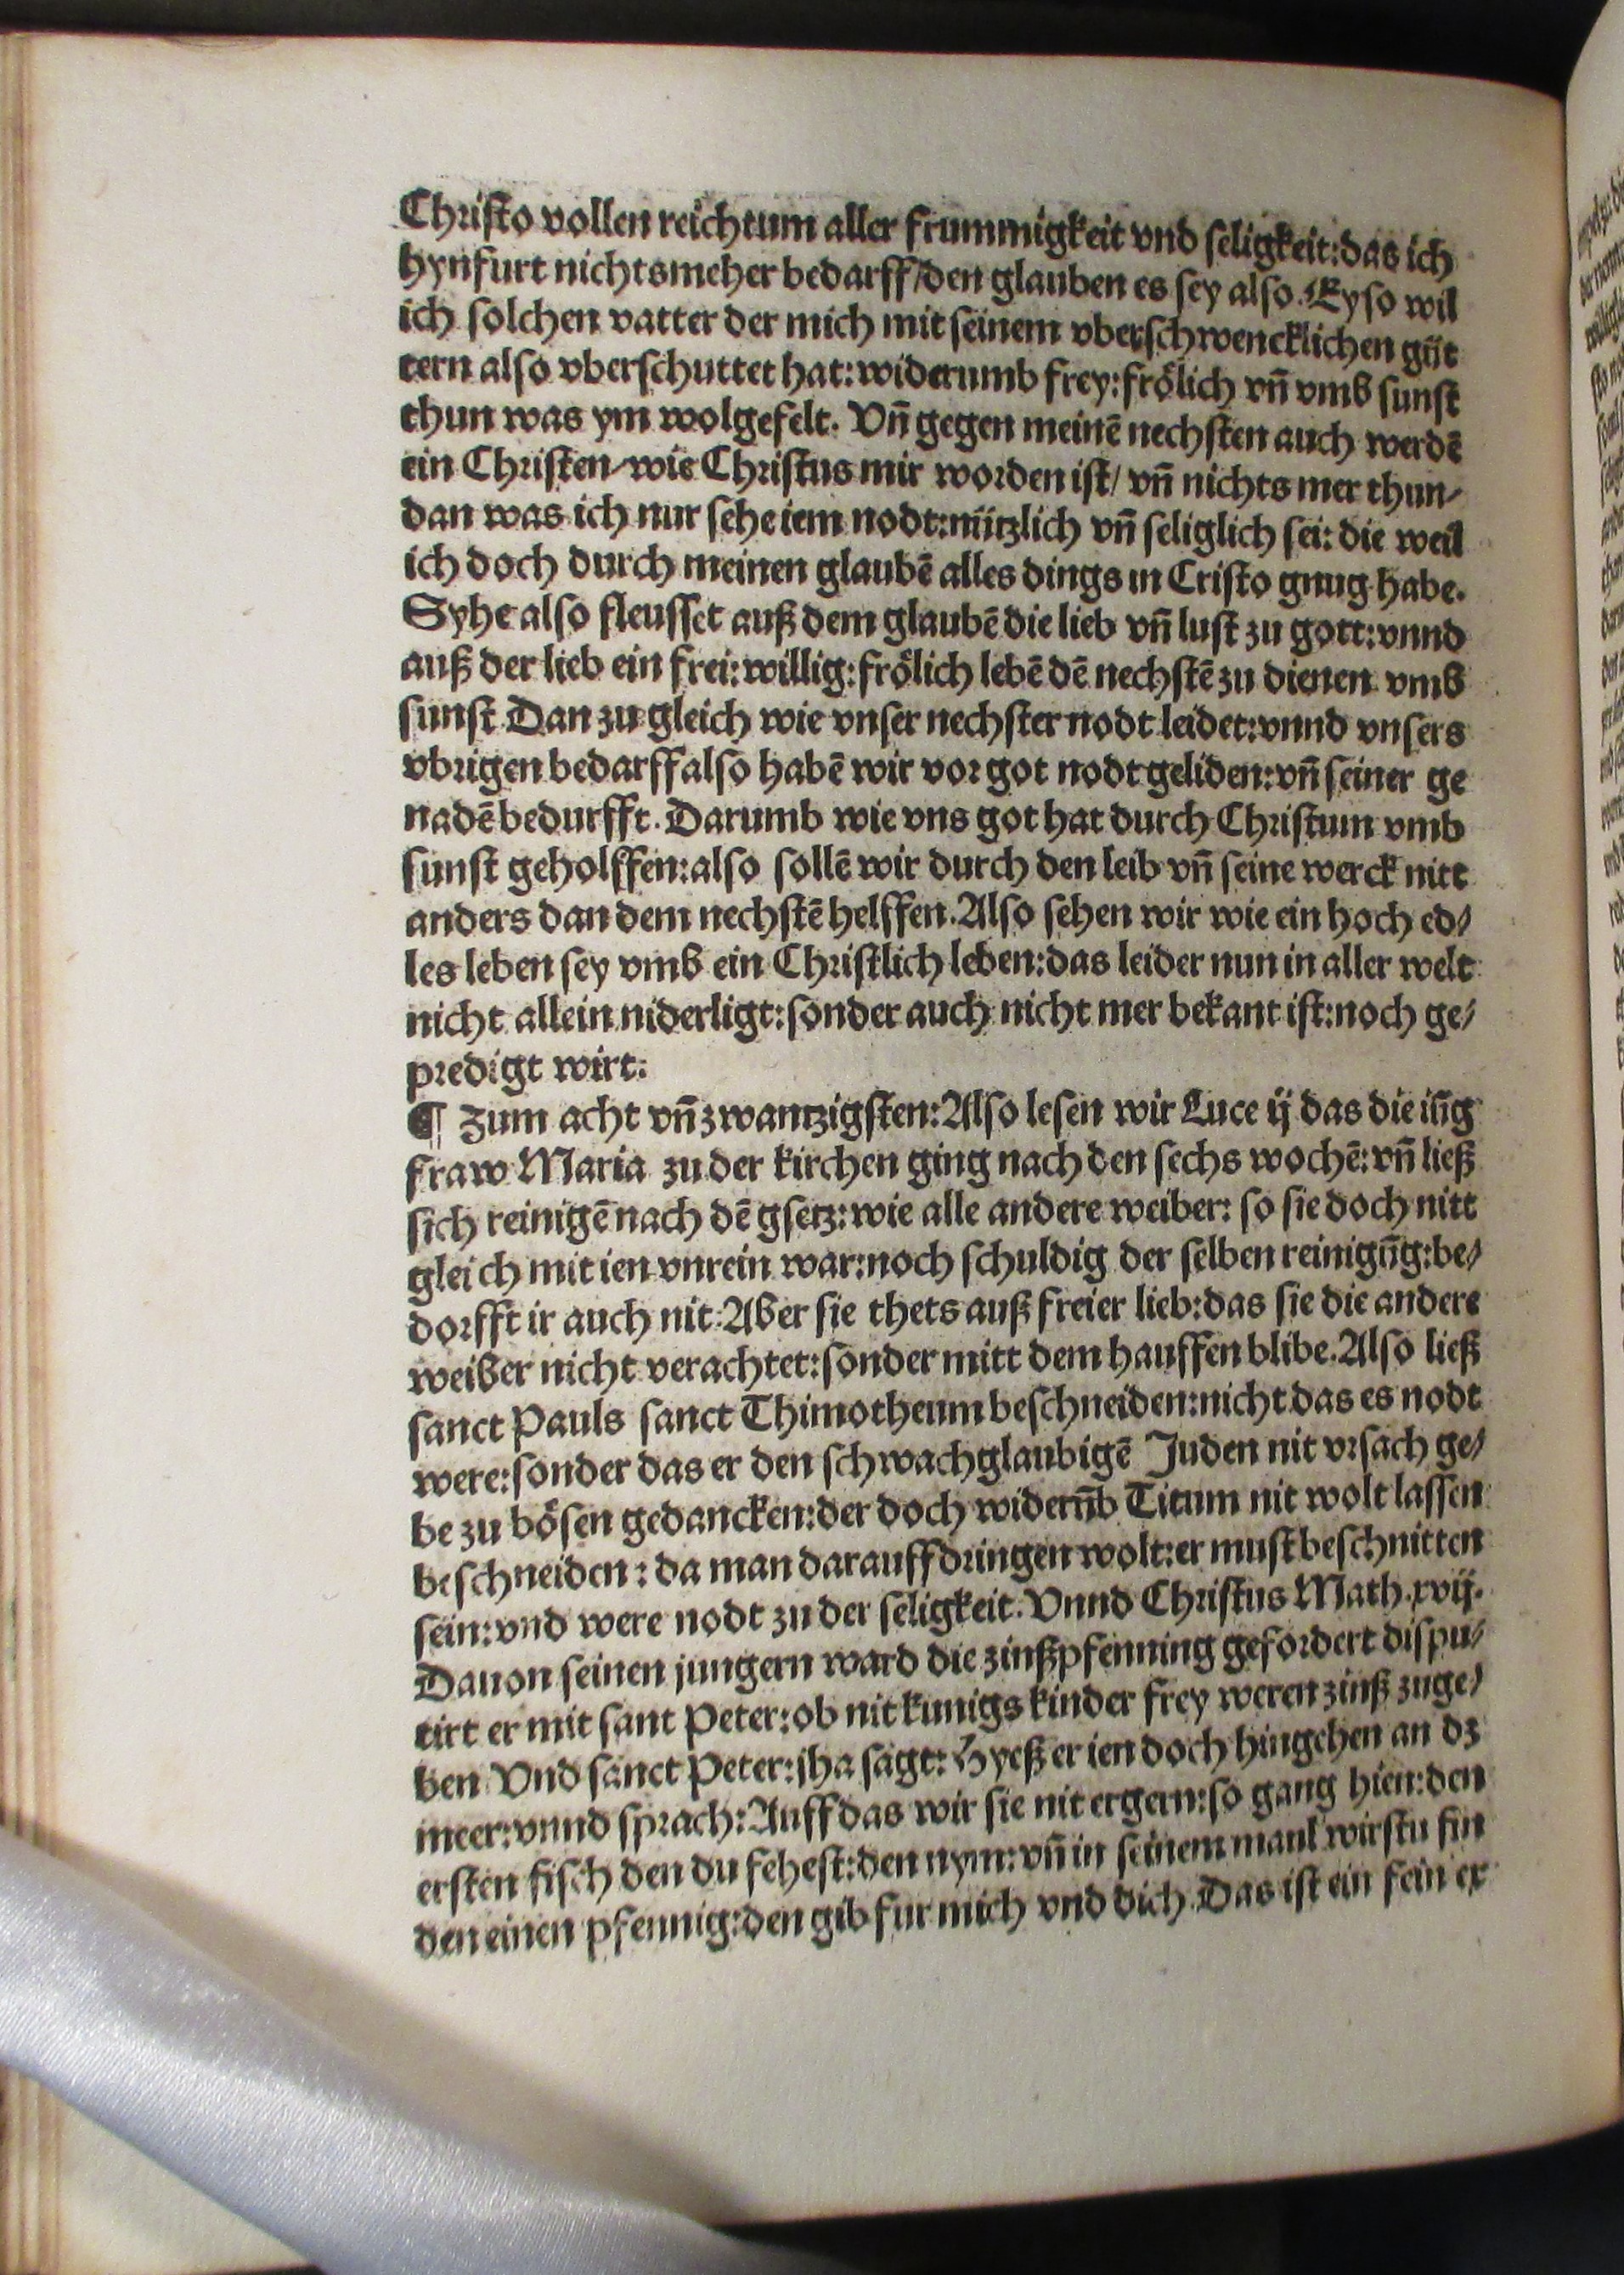 Christo vollen reichtum aller frummigkeit vnd seligkeit: das ich
hynfurt nichtsmeher bedarff/den glauben es sey also. Ey so wil
ich solchen vatter der mich mit seinem vberschwencklichen güt
tern also vberschuttet hat: widerumb frey: frölich vn̄ vmb sunst
thun was ym wolgefelt. Vn̄ gegen meinē nechsten auch werdē
ein Christen/wie Christus mir worden ist/ vn̄ nichts mer thun/
dan was ich nur sehe iem nodt: nützlich vn̄ seliglich sei: die weil
ich doch durch meinen glaubē alles dings in Cristo gnug habe.
Syhe also fleusset auß dem glaubē die lieb vn̄ lust zu gott: vnnd
auß der lieb ein frei: willig: frölich lebē dē nechstē zu dienen vmb
sunst Dan zu gleich wie vnser nechster nodt leidet: vnnd vnsers
vbrigen bedarff also habē wir vor got nodt geliden: vn̄ seiner ge
nadē bedurfft. Darumb wie vns got hat durch Christum vmb
sunst geholffen: also sollē wir durch den leib vn̄ seine werck nitt
anders dan dem nechstē helffen. Also sehen wir wie ein hoch ed/
les leben sey vmb ein Christlich leben: das leider nun in aller welt
nicht allein niderligt: sonder auch nicht mer bekant ist: noch ge/
predigt wirt:
¶ Zum acht vn̄ zwantzigsten: Also lesen wir Luce ij das die iūg
fraw Maria zu der kirchen ging nach den sechs wochē: vn̄ ließ
sich reinigē nach dē gsetz: wie alle andere weiber: so sie doch nitt
gleich mit ien vnrein war: noch schuldig der selben reinigūg: be/
dorfft ir auch nit. Aber sie thets auß freier lieb: das sie die andere
weiber nicht verachtet: sonder mitt dem hauffen blibe. Also ließ
sanct Pauls sanct Thimotheum beschneiden: nicht das es nodt
were: sonder das er den schwachglaubigē Juden nit vrsach ge/
be zu bösen gedancken: der doch widerūb Titum nit wolt lassen
beschneiden: da man darauff dringen wolt: er must beschnitten
sein: vnd were nodt zu der seligkeit. Vnnd Christus Math. xvij.
Dauon seinen jungern ward die zinßpfenning gefordert dispu/
tirt er mit sant Peter: ob nit kunigs kinder frey weren zinß zuge/
ben Vnd sanct Peter: jha sagt: Hyeß er ien doch hingehen an dz
meer: vnnd sprach: Auff das wir sie nit ergern: so gang hien: den
ersten fisch den du fehest: den nym: vn̄ in seinem maul wirstu fin
den einen pfennig: den gib fur mich vnd dich. Das ist ein fein ex